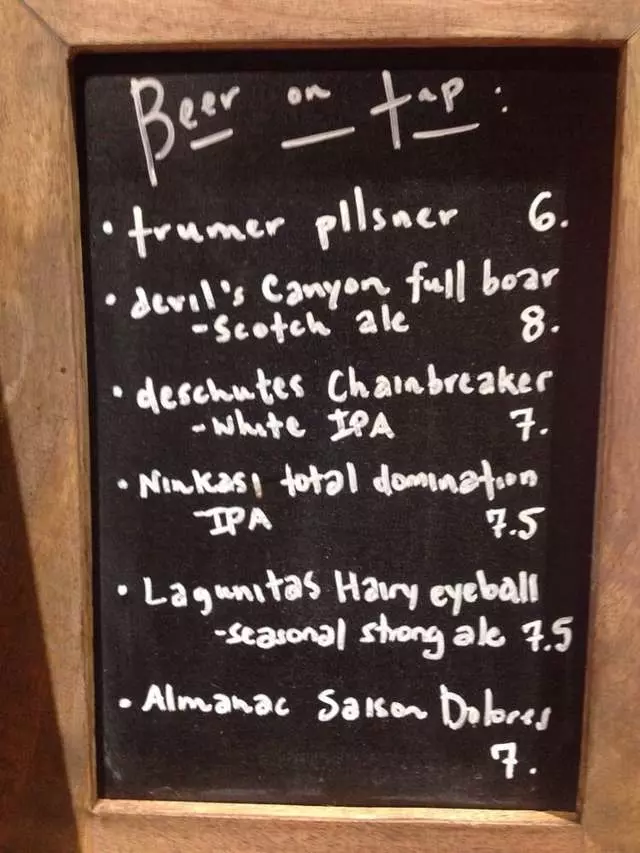 Beer on tap:
• trumer pilsner 6.
• devil's Canyon full boar
-Scotch ale 8.
• deschutes Chainbreaker
-White IPA 7.
• Ninkasi total domination
IPA 7.5
• Lagunitas Hairy eyeball
-seasonal strong ale 7.5
• Almanac Saison Dolores
7.